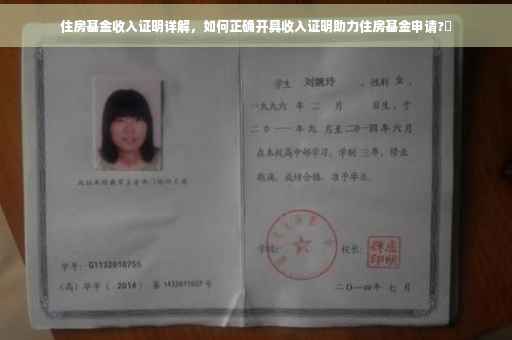 住房基金收入证明详解，如何正确开具收入证明助力住房基金申请?
学生 刘婉玲 ，性别 女 ，
一九九六 年 二 月 日生，于
二〇一一年九 月至二〇一四年六月
在本校高中部学习，学制 三年，修业
期满，成绩合格，准予毕业。
学校： 校长：
学号： G1132010755
（高）毕字（ 2014 ）第 1432011027 号
二〇一四年 七 月